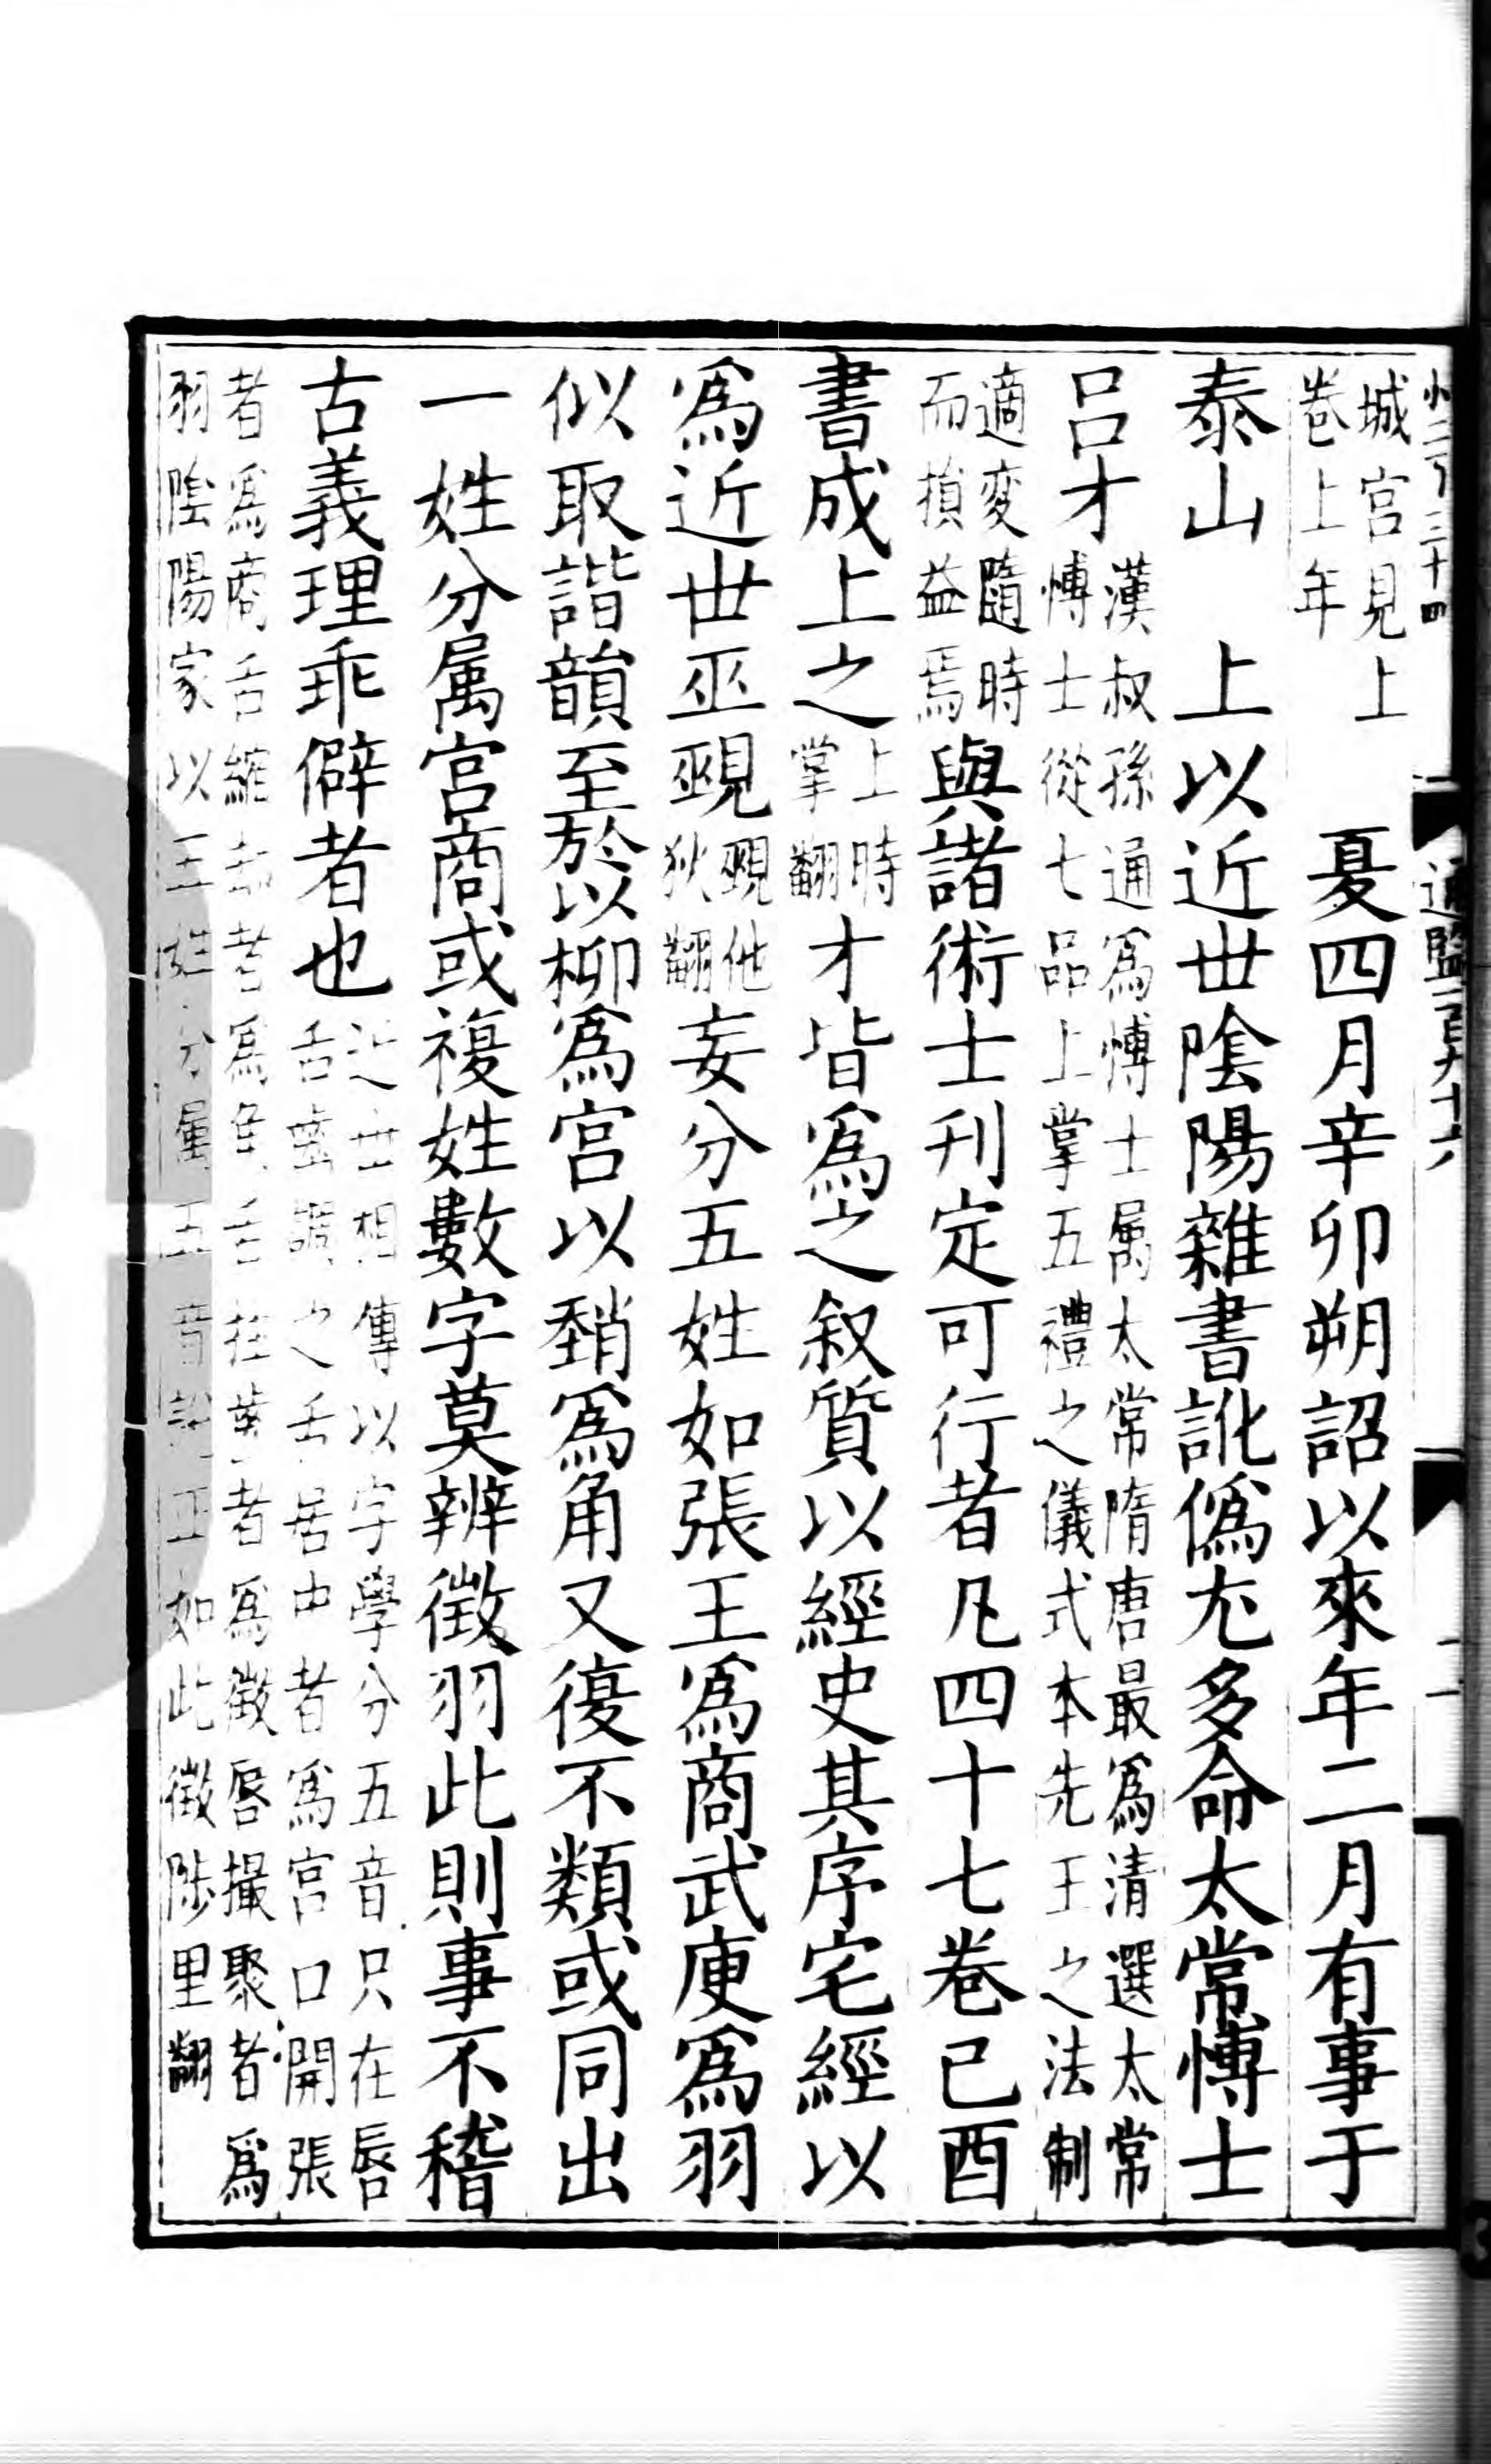 城宮見上卷上年　夏四月辛卯朔詔以來年二月有事于
泰山　上以近世陰陽雜書訛僞尤多命太常博士
呂才漢叔孫通爲博士屬太常隋唐最爲清選太常博士從七品上掌五禮之儀式本先王之法制
適変隨時而損益焉與諸術士刋定可行者凡四十七卷己酉
書成上之上時掌翻才皆爲之叙質以經史其序宅經以
爲近世巫覡覡他狄翻妄分五姓如張王爲商武庾爲羽
似取諧韻至於以柳爲宮以趙爲角又復不類或同出
一姓分属宮商或複姓數字莫辨徵羽此則事不稽
古義理乖僻者也近世相傳以字學分五音只在唇舌齒調之舌居中者爲宮口開張
者爲商舌縮却者爲角舌拄齒者爲徵唇撮聚者爲羽陰陽家以五姓分屬五音說正如此徵陟里翻
通鑑一百九十六